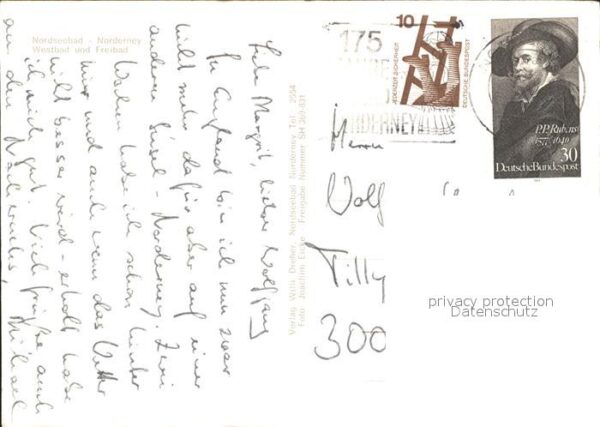 Nordseebad - Norderney
Westbad und Freibad
Liebe Margrit, lieber Wolfgang
In England bin ich nun zwar
nicht mehr dafür aber auf einer
anderen Insel - Norderney. Zwei
Wochen habe ich schon hinter
mir und auch wenn das Wetter
nicht besser wird - erholt habe
ich mich gut. Viele Grüße, auch
an den Nachwuchs, Michael
Verlag Willi Dreßler, Nordseebad Norderney, Tel. 2654
Foto: Joachim Eicke - Freigabe Nummer SH 260-831
175
JAHRE
NORDERNEY
10
JEDERZEIT SICHERHEIT
DEUTSCHE BUNDESPOST
P.P. Rubens
1577/1640
30
Deutsche Bundespost
Herrn
Wolf
Tilly
300
privacy protection
Datenschutz